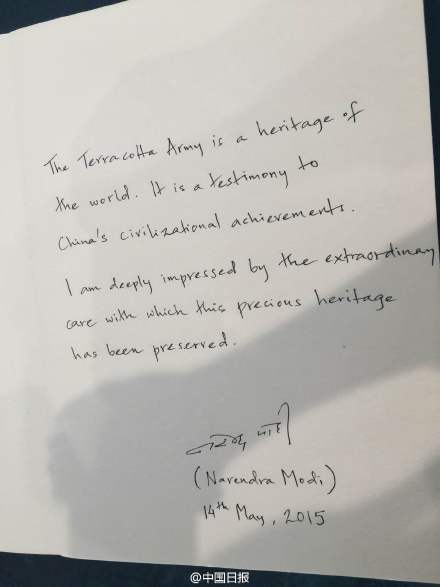 The Terracotta Army is a heritage of
the world. It is a testimony to
China's civilizational achievements.
I am deeply impressed by the extraordinary
care with which this precious heritage
has been preserved.
नरेन्द्र मोदी
(Narendra Modi)
14th May, 2015
@中国日报